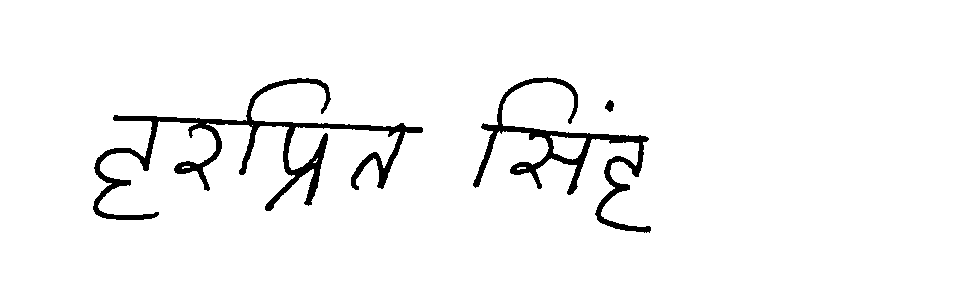 हरप्रित सिंह